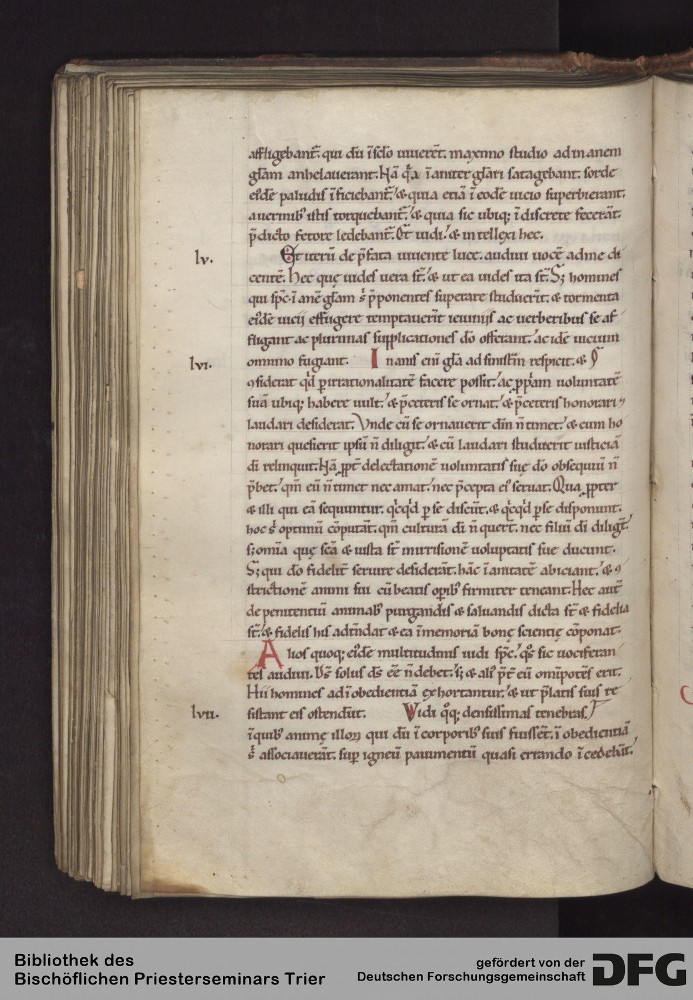 affligebant᷑. qui dū ĩ sc̄lo uiuerēt. maximo studio ad inanem
gl̄am anhelauerant. Nā q̄a ĩaniter gl̄ari satagebant. sorde
eiꝰdē paludis ĩficiebant᷑. & quia etiā ĩ eodē uicio superbierant.
a uermibꝰ istis torquebant᷑. & quia sic ubiq; ĩdiscrete fecerāt.
p̄dicto fetore ledebant᷑. Et uidi. & intellexi hec.
lv. Et iterū de p̄fata uiuente luce. audiui uocē ad me di
centē. Hec quę uides uera st̄. & ut ea uides ita st̄. S; homines
qui spc̄. ĩ anē gl̄am s̄ p̄ponentes superare studuerīt. & tormenta
eiꝰdē uicij effugere temptauerīt ieiunijs ac uerberibus se af
fligant ac plurimas supplicationes dō offerant. ac idē uicium
lvi. omnino fugiant. Inanis enī gl̄a ad sinistrā respicit. & ꝯ
siderat qd̄ p irrationalitatē facere possit. ac ꝓpam uoluntatē
suā ubiq; habere uult. & p̄ ceteris se ornat. & p̄ ceteris honorari &
laudari desiderat. Vnde cū se ornauerit dm̄ n̄ timet. & cum ho
norari quesierit ipsū n̄ diligit. & cū laudari studuerit iusticiā
dī relinquit. Nā ꝓpt᷑ delectationē uoluntatis suę dō obsequiū n̄
p̄bet. qm̄ eū n̄ timet nec amat. nec p̄cepta eiꝰ seruat. Qua ꝓpter
& illi qui eā sequuntur. qcqd p se discūt. & qcqd p se disponunt.
hoc s̄ optimū cōputāt. qm̄ culturā dī n̄ quert̄. nec filiū dī diligt̄.
s; om̄ia quę sc̄a & iusta st̄ in irrisionē uoluptatis sue ducunt.
S; qui dō fidelit᷑ seruire desiderāt. hāc ĩanitatē abiciant. & ꝯ
strictionē animi sui cū beatis opibꝰ firmiter teneant. Hec aut̄
de penitentiū animabꝰ purgandis & saluandis dicta st̄. & fidelia
st̄. & fidelis his adtendat & ea ĩ memoriā bonę scientię cōponat.
Alios quoq; eiꝰdē multitudinis uidi spc̄. qͦs sic uociferan
tes audiui. Vn̄ solus dꝰ eē n̄ debet. s; & aliꝰ p̄t᷑ eū om̄ipotēs erit.
Hii homines ad ĩobedientiā exhortantur. & ut p̄latis suis re
lvii. sistant eis ostendūt. Vidi qͦq; densissimas tenebras.
ĩ quibꝰ anime illoꝝ qui dū ĩ corporibꝰ suis fuissēt. ĩobedientiā
s̄ associauerāt. sup igneū pauimentū quasi errando ĩcedebāt.
Bibliothek des
Bischöflichen Priesterseminars Trier
gefördert von der
Deutschen Forschungsgemeinschaft
DFG